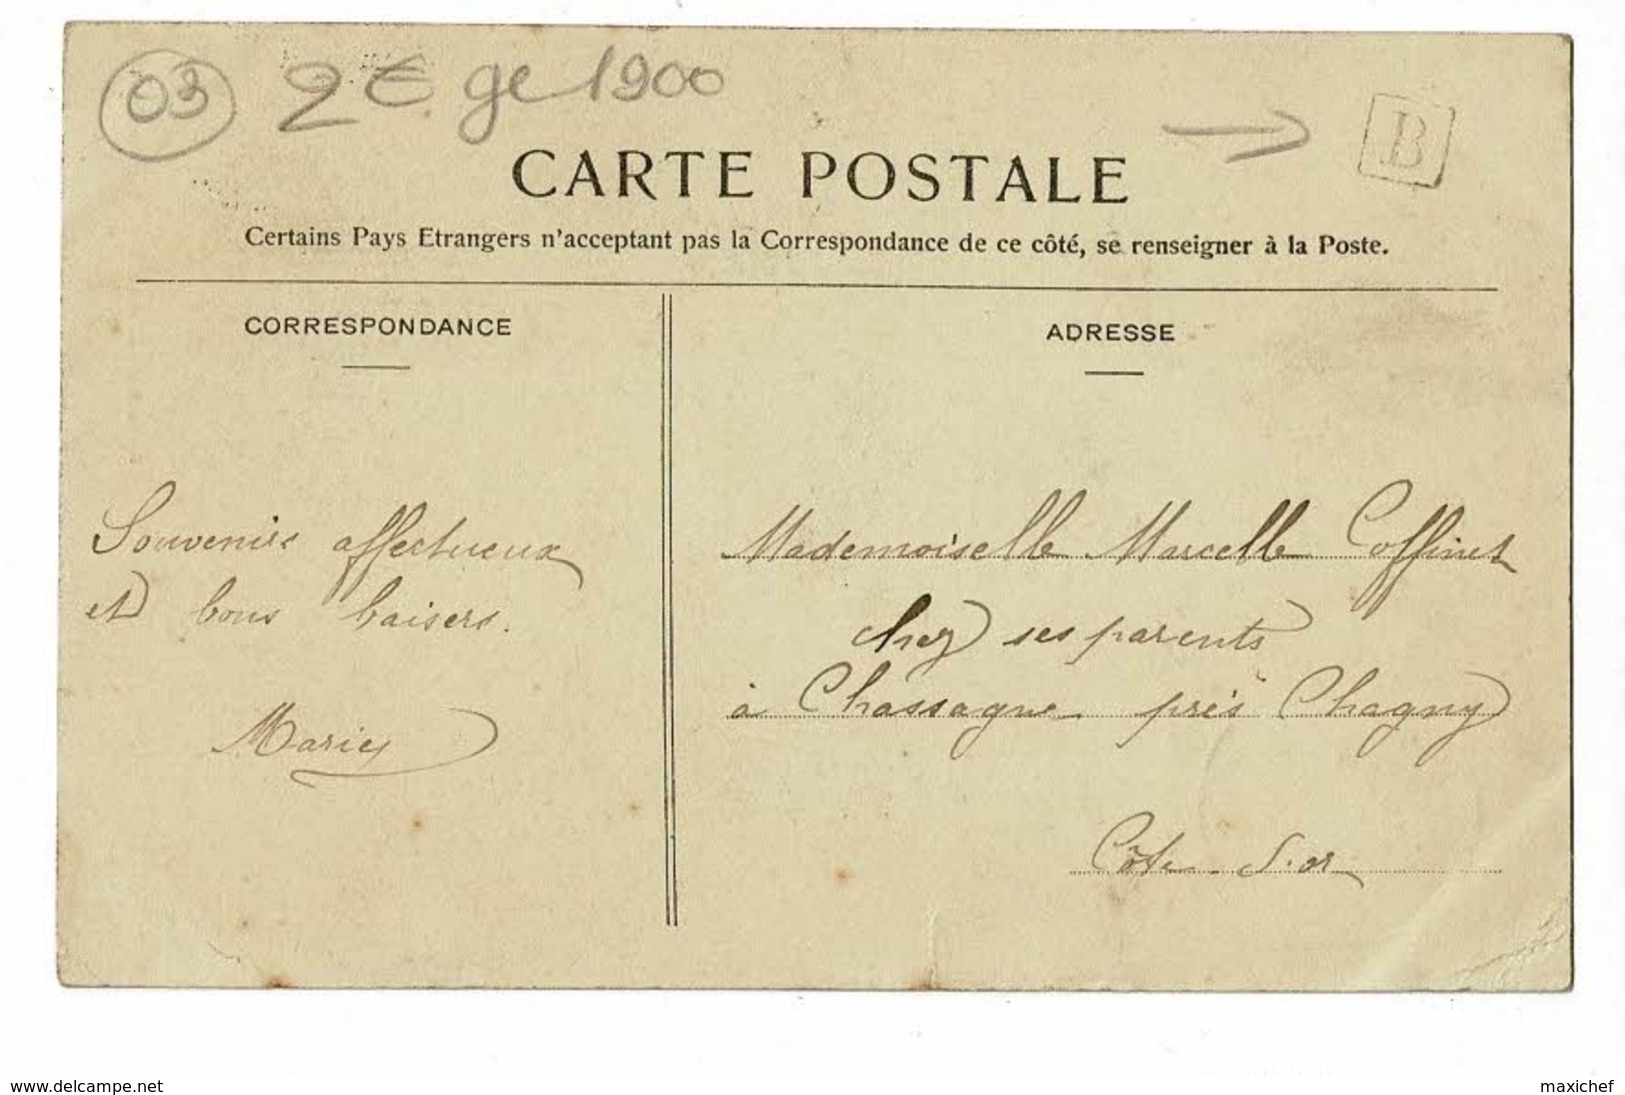 03 2€ ge 1900
B
CARTE POSTALE
Certains Pays Etrangers n'acceptant pas la Correspondance de ce côté, se renseigner à la Poste.
CORRESPONDANCE
Souvenirs affectueux
et bons baisers.
Marie
ADRESSE
Mademoiselle Marcelle Coffinet
chez ses parents
à Chassagne près Chagny
Côte d'or
www.delcampe.net
maxichef